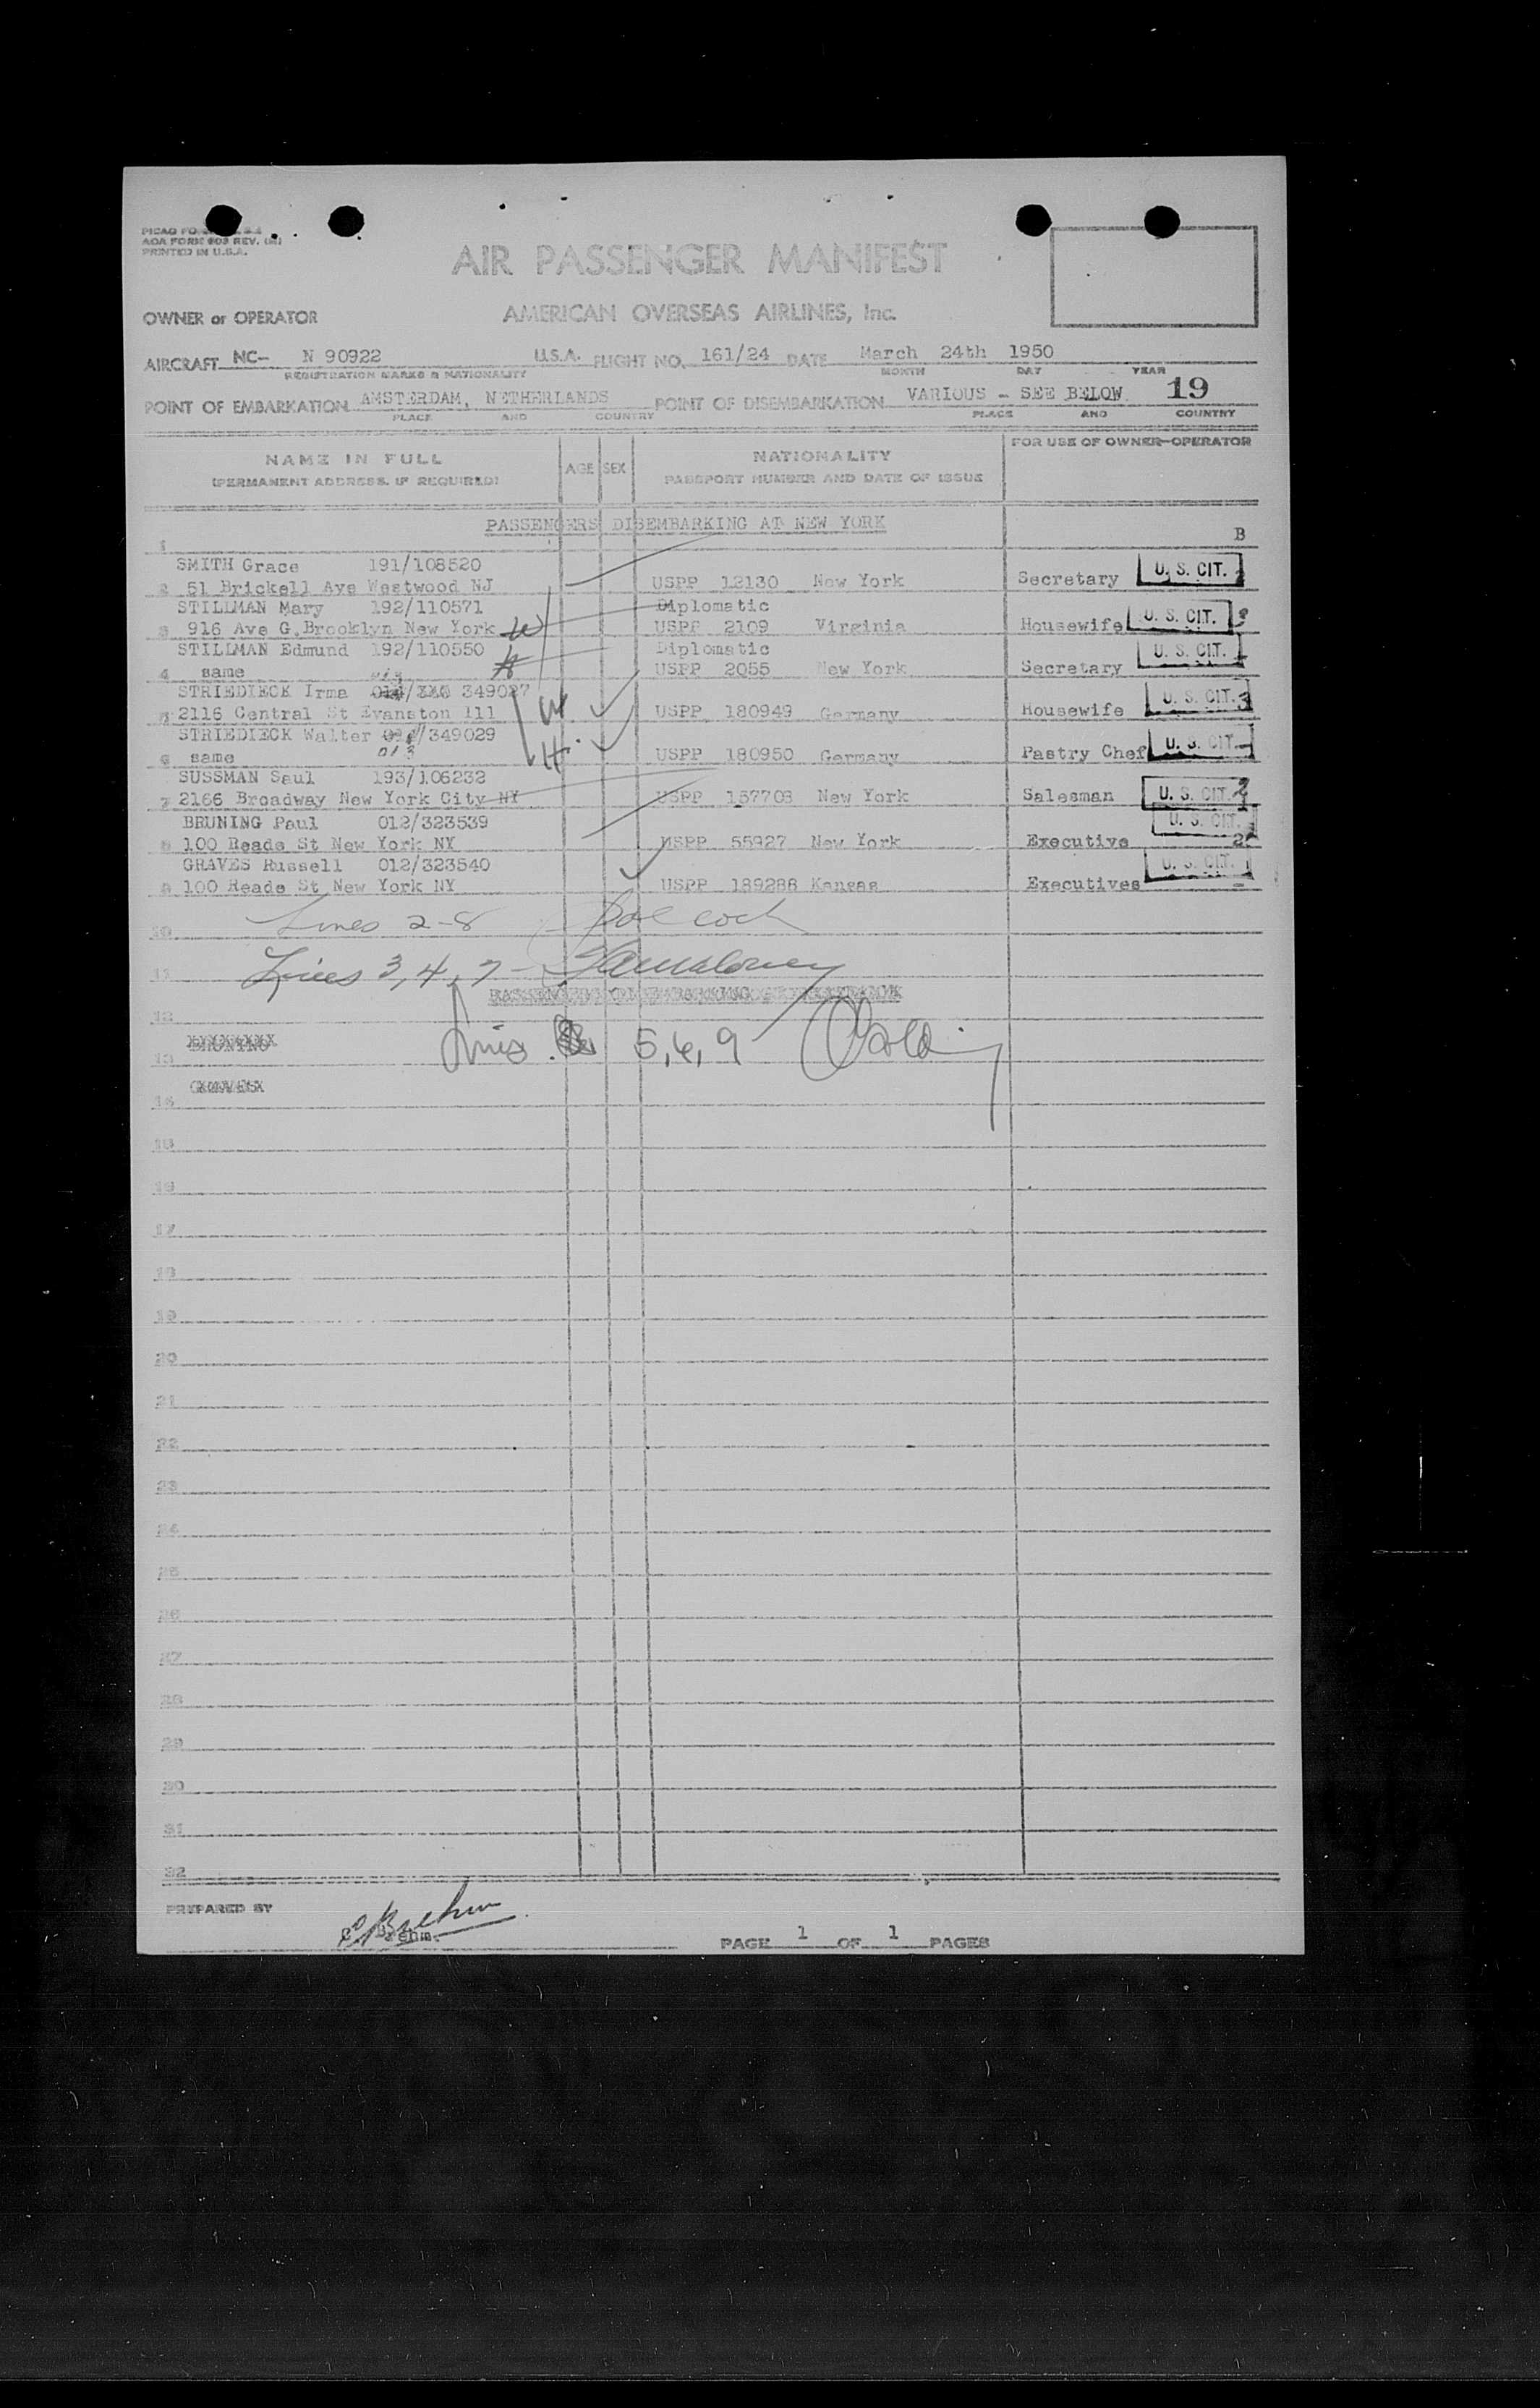 AOA FORM 603 REV.
PRINTED IN U.S.A.
AIR PASSENGER MANIFEST
OWNER or OPERATOR AMERICAN OVERSEAS AIRLINES, Inc.
AIRCRAFT NC- N 90922 U.S.A. FLIGHT NO. 161/24 DATE March 24th 1950
REGISTRATION MARKS & NATIONALITY MONTH DAY YEAR
POINT OF EMBARKATION AMSTERDAM, NETHERLANDS POINT OF DISEMBARKATION VARIOUS - SEE BELOW 19
PLACE AND COUNTRY PLACE AND COUNTRY
NAME IN FULL AGE SEX NATIONALITY FOR USE OF OWNER-OPERATOR
(PERMANENT ADDRESS, IF REQUIRED) PASSPORT NUMBER AND DATE OF ISSUE
PASSENGERS DISEMBARKING AT NEW YORK
1 B
SMITH Grace 191/108520
2 51 Brickell Ave Westwood NJ USPP 12130 New York Secretary U. S. CIT.
STILLMAN Mary 192/110571 Diplomatic
3 916 Ave G.Brooklyn New York W USPP 2109 Virginia Housewife U. S. CIT.
STILLMAN Edmund 192/110550 Diplomatic
4 same H USPP 2055 New York Secretary U. S. CIT.
STRIEDIECK Irma 349027
5 2116 Central St Evanston Ill W USPP 180949 Germany Housewife U. S. CIT. 3
STRIEDIECK Walter /349029
6 same 013 H. USPP 180950 Germany Pastry Chef U. S. CIT.
SUSSMAN Saul 193/106232
7 2166 Broadway New York City NY USPP 157708 New York Salesman U. S. CIT.
BRUNING Paul 012/323539
8 100 Reade St New York NY USPP 55927 New York Executive U. S. CIT.
GRAVES Russell 012/323540
9 100 Reade St New York NY USPP 189288 Kansas Executives U. S. CIT.
10 Lines 2-8
11 Lines 3, 4, 7 -
12
13 BRUNING Lines 5, 6, 9
14 GRAVES
15
16
17
18
19
20
21
22
23
24
25
26
27
28
29
30
31
32
PREPARED BY
Brehm.
PAGE 1 OF 1 PAGES